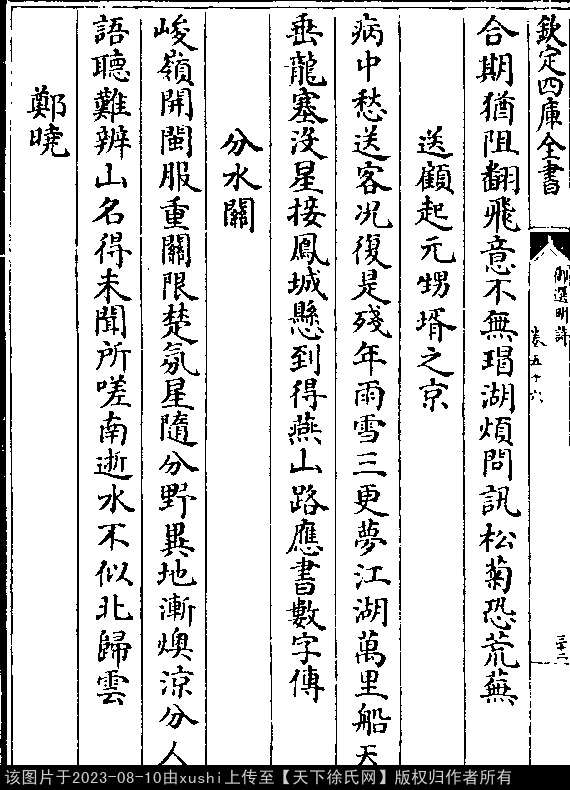 欽定四庫全書
御選明詩
卷五十六
三十二
合期猶阻翻飛意不無瑁湖煩問訊松菊恐荒蕪
送顧起元甥壻之京
病中愁送客况復是殘年雨雪三更夢江湖萬里船天
垂龍塞没星接鳳城懸到得燕山路應書數字傳
分水關
峻嶺開閩服重關限楚氛星隨分野異地漸燠涼分人
語聽難辨山名得未聞所嗟南逝水不似北歸雲
鄭曉
该图片于2023-08-10由xushi上传至【天下徐氏网】版权归作者所有